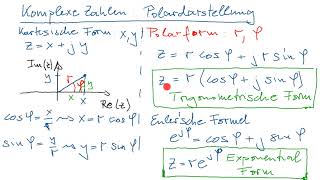 Komplexe Zahlen Polardarstellung
Kartesische Form x, y
z = x + j y
Im(z)
r
y
φ
x
Re(z)
cos φ = x/r ⇝ x = r cos φ
sin φ = y/r ⇝ y = r sin φ
Polarform: r, φ
z = r cos φ + j r sin φ
z = r (cos φ + j sin φ)
Trigonometrische Form
Euler'sche Formel
e^jφ = cos φ + j sin φ
z = r e^jφ Exponential
Form